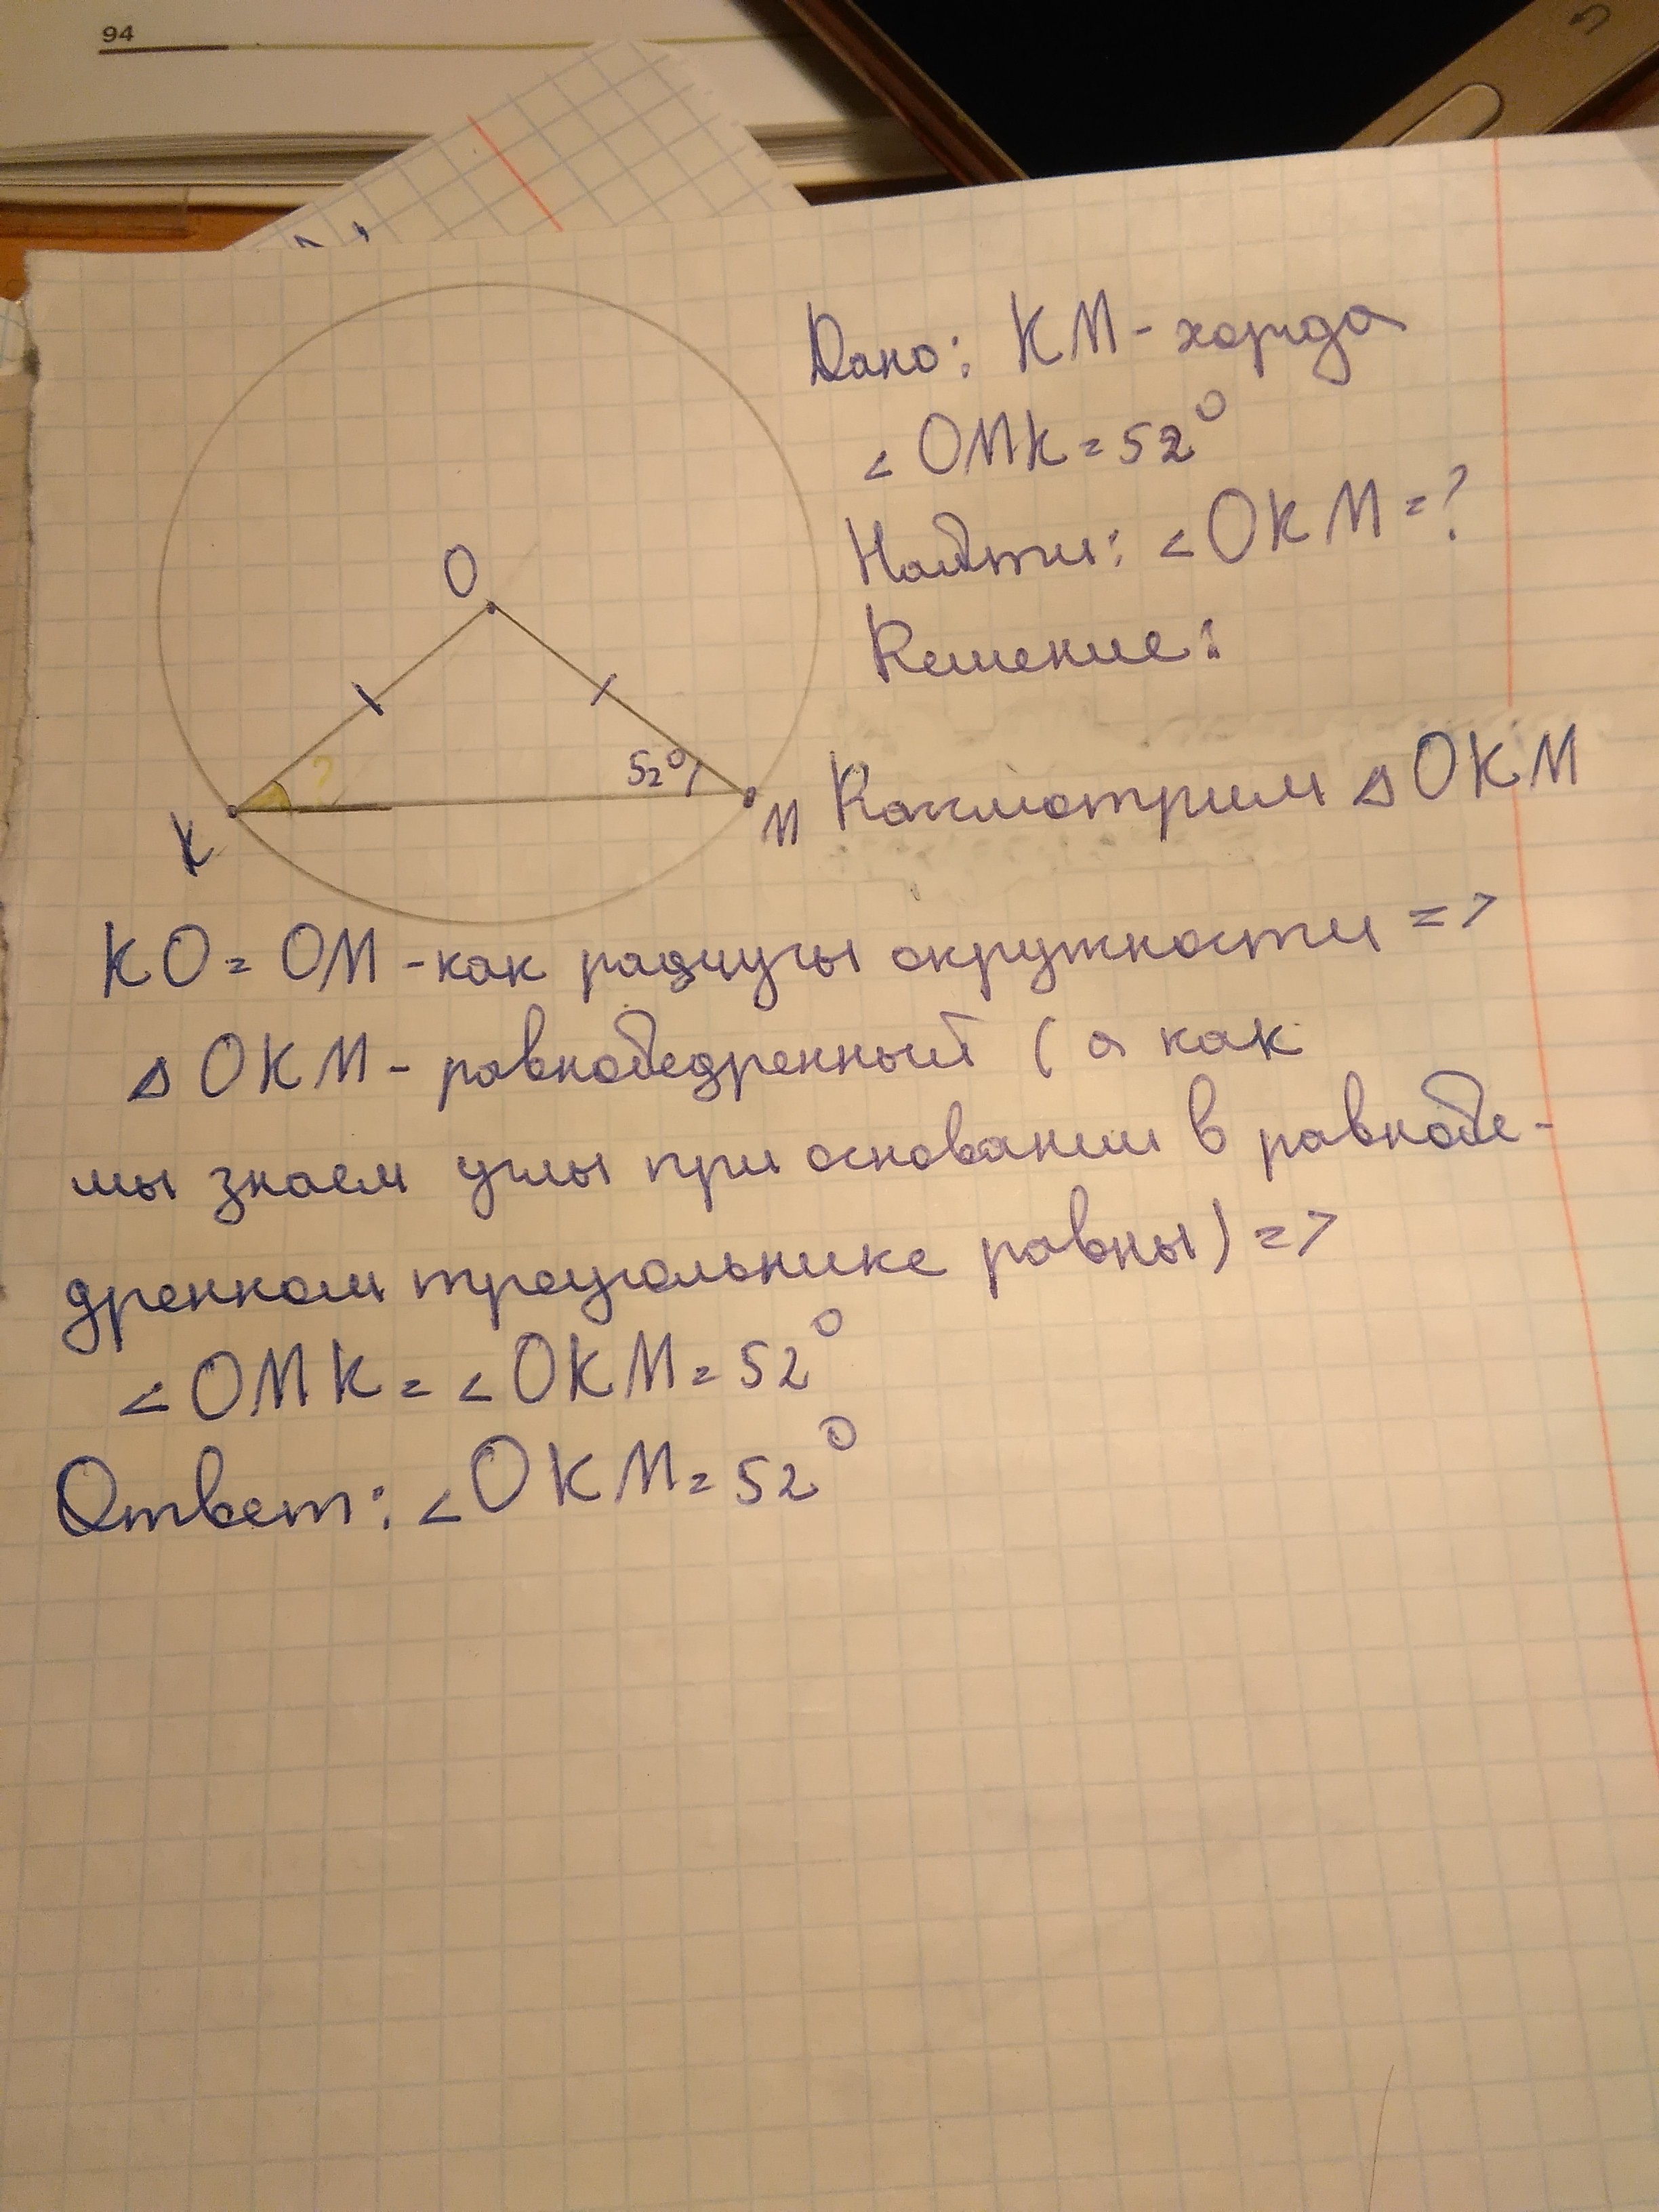 94
Дано: KM - хорда
∠OMK = 52°
Найти: ∠OKM = ?
Решение:
O
52°
?
K
M
Рассмотрим △OKM
KO = OM - как радиусы окружности =>
△OKM - равнобедренный (а как
мы знаем углы при основании в равнобе-
дренном треугольнике равны) =>
∠OMK = ∠OKM = 52°
Ответ: ∠OKM = 52°